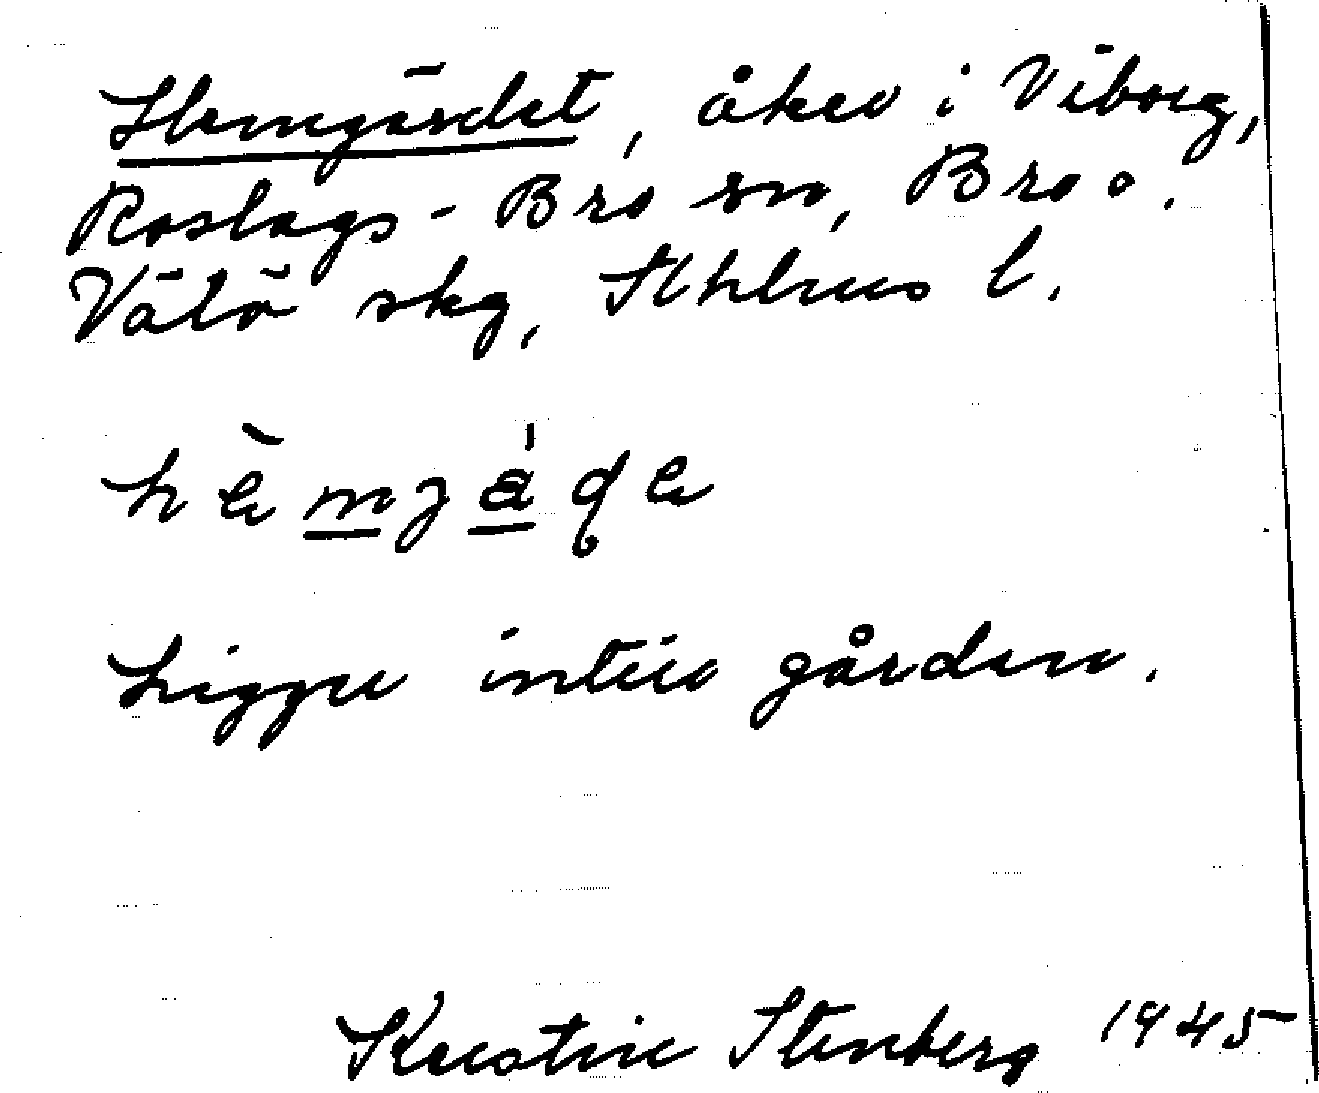 Hemgärdet, åker i Viborg,
Roslags-Bro sn, Bro o.
Vätö skg, Sthlms l.
hèmjá̱ɖe
Ligger intill gården.
Kerstin Stenberg 1945